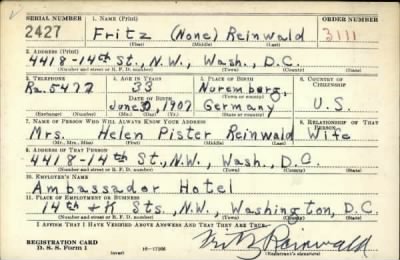 SERIAL NUMBER 1. NAME (Print) ORDER NUMBER
2427 Fritz (None) Reinwald 3111
(First) (Middle) (Last)
2. ADDRESS (Print)
4418-14th St., N.W., Wash., D.C.
(Number and street or R. F. D. number) (Town) (County) (State)
3. TELEPHONE 4. AGE IN YEARS 5. PLACE OF BIRTH 6. COUNTRY OF CITIZENSHIP
33 Nuremberg,
DATE OF BIRTH (Town or county)
Ra. 5477 June 30, 1907 Germany U.S.
(Exchange) (Number) (Mo.) (Day) (Yr.) (State or country)
7. NAME OF PERSON WHO WILL ALWAYS KNOW YOUR ADDRESS 8. RELATIONSHIP OF THAT PERSON
Mrs. Helen Pister Reinwald Wife
(Mr., Mrs., Miss) (First) (Middle) (Last)
9. ADDRESS OF THAT PERSON
4418-14th St., N.W., Wash., D.C.
(Number and street or R. F. D. number) (Town) (County) (State)
10. EMPLOYER'S NAME
Ambassador Hotel
11. PLACE OF EMPLOYMENT OR BUSINESS
14th + K Sts., N.W., Washington, D.C.
(Number and street or R. F. D. number) (Town) (County) (State)
I AFFIRM THAT I HAVE VERIFIED ABOVE ANSWERS AND THAT THEY ARE TRUE.
REGISTRATION CARD
D. S. S. Form 1 (over) Fritz Reinwald
(Registrant's signature)